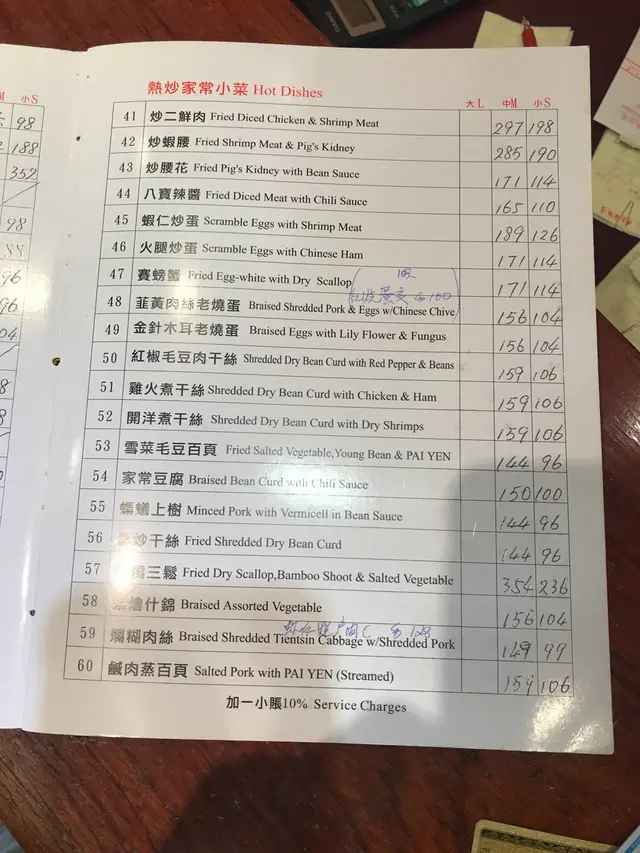 熱炒家常小菜 Hot Dishes
大L 中M 小S
41 炒二鮮肉 Fried Diced Chicken & Shrimp Meat 297 198
42 炒蝦腰 Fried Shrimp Meat & Pig's Kidney 285 190
43 炒腰花 Fried Pig's Kidney with Bean Sauce 171 114
44 八寶辣醬 Fried Diced Meat with Chili Sauce 165 110
45 蝦仁炒蛋 Scramble Eggs with Shrimp Meat 189 126
46 火腿炒蛋 Scramble Eggs with Chinese Ham 171 114
47 賽螃蟹 Fried Egg-white with Dry Scallop 171 114
48 韮黃肉絲老燒蛋 Braised Shredded Pork & Eggs w/Chinese Chive 156 104
49 金針木耳老燒蛋 Braised Eggs with Lily Flower & Fungus 156 104
50 紅椒毛豆肉干絲 Shredded Dry Bean Curd with Red Pepper & Beans 159 106
51 雞火煮干絲 Shredded Dry Bean Curd with Chicken & Ham 159 106
52 開洋煮干絲 Shredded Dry Bean Curd with Dry Shrimps 159 106
53 雪菜毛豆百頁 Fried Salted Vegetable,Young Bean & PAI YEN 144 96
54 家常豆腐 Braised Bean Curd with Chili Sauce 150 100
55 螞蟻上樹 Minced Pork with Vermicell in Bean Sauce 144 96
56 炒干絲 Fried Shredded Dry Bean Curd 144 96
57 燒三鬆 Fried Dry Scallop,Bamboo Shoot & Salted Vegetable 354 236
58 燴什錦 Braised Assorted Vegetable 156 104
59 爛糊肉絲 Braised Shredded Tientsin Cabbage w/Shredded Pork 149 99
60 鹹肉蒸百頁 Salted Pork with PAI YEN (Streamed) 159 106
加一小賬10% Service Charges
M 小S
98
188
352
98
88
96
96
04